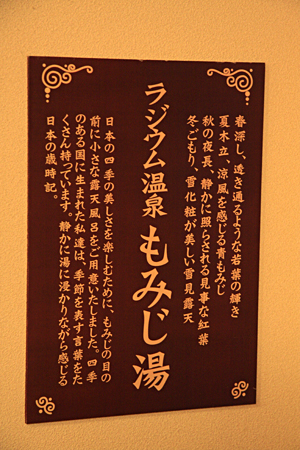 春深し、透き通るような若葉の輝き
夏木立、涼風を感じる青もみじ
秋の夜長、静かに照らされる見事な紅葉
冬ごもり、雪化粧が美しい雪見露天
ラジウム温泉 もみじ湯
日本の四季の美しさを楽しむために、もみじの目の
前に小さな露天風呂をご用意いたしました。四季
のある国に生まれた私達は、季節を表す言葉をた
くさん持っています。静かに湯に浸かりながら感じる
日本の歳時記。